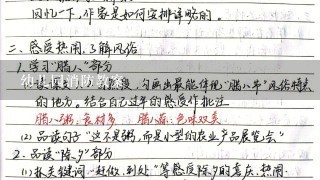 回忆一下，作家是如何安排详略的。
二、感受热闹，了解风俗
1. 学习“腊八”部分
勾画出最能体现“腊八节”风俗特点
的地方。结合自己过年的感受作批注
腊八粥：食材多 腊八蒜：色味双美
(2) 品读句子“这不是粥，而是小型的农业产品展览会”
2. 品读“除夕”部分
(1) 抓关键词“赶做、到处”等感受除夕的喜庆、热闹
幼儿园消防教案